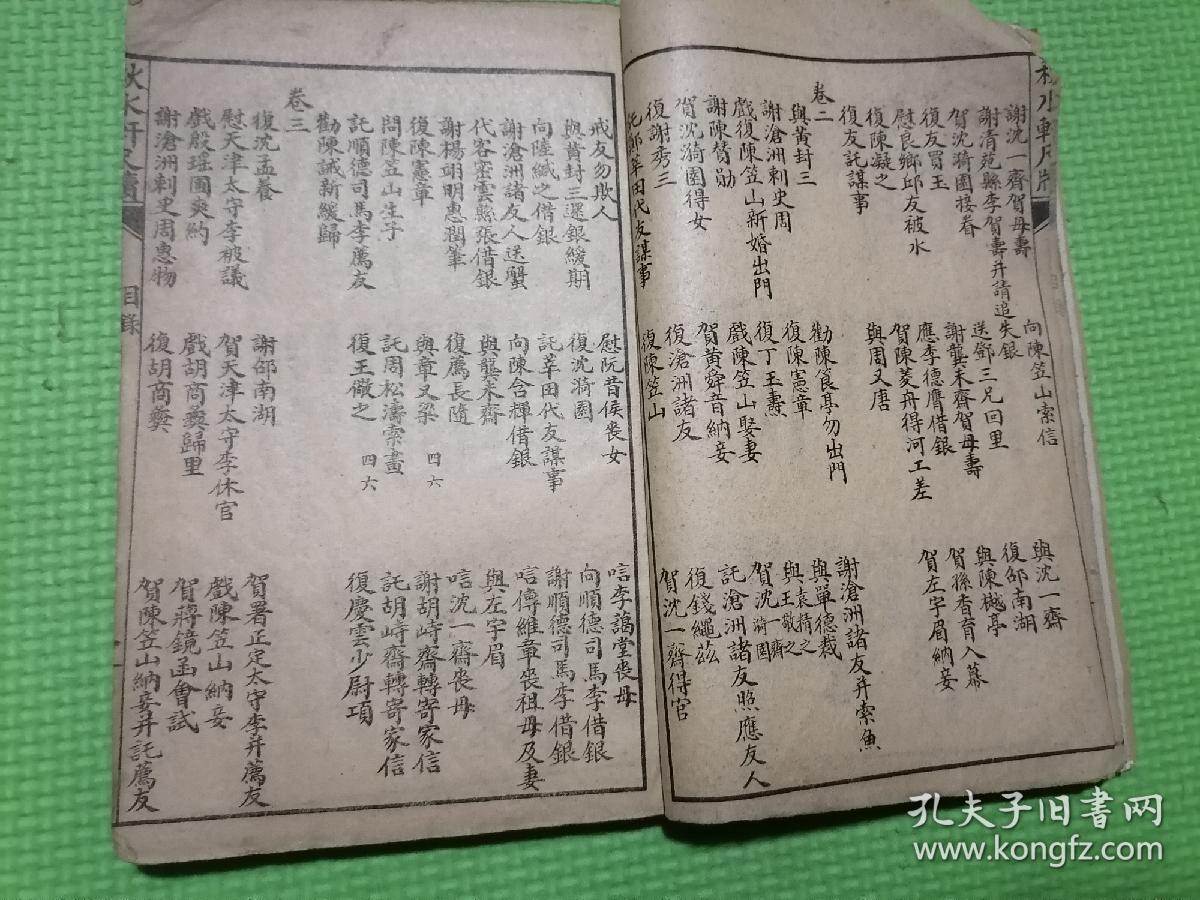 秋水軒尺牘
謝沈一齋賀母壽
向陳笠山索信
與沈一齋
謝清苑縣李賀壽并請追失銀
復邰南湖
賀沈漪園接眷
送鄧三兄回里
與陳樾亭
復友買玉
謝龔未齋賀母壽
賀孫香育入幕
慰良鄉邱友被水
應李德膺借銀
賀左宇眉納妾
復陳凝之
賀陳菱舟得河工差
復友託謀事
與周又唐
卷二
與黃封三
勸陳食亭勿出門
謝滄洲諸友并索魚
謝滄洲刺史周
復陳憲章
與單德裁
戲復陳笠山新婚出門
復丁玉壽
與袁精之
與王儆之
謝陳篔勛
戲陳笠山娶妻
賀沈一齋漪園
賀沈漪園得女
賀黃舜音納妾
託滄洲諸友照應友人
復謝秀三
復滄洲諸友
復錢繩茲
託鄭莘田代友謀事
復陳笠山
賀沈一齋得官
戒友勿欺人
慰阮昔侯喪女
唁李藹堂喪母
與黃封三還銀緩期
復沈漪園
向順德司馬李借銀
向陸緘之借銀
託莘田代友謀事
謝順德司馬李借銀
謝滄洲諸友人送蟹
向陳含輝借銀
唁傅維章喪祖母及妻
代客密雲縣張借銀
與龔未齋
與左宇眉
謝楊翊明惠潤筆
復薦長隨
唁沈一齋喪母
復陳憲章
與章又梁 四六
謝胡峙齋轉寄家信
問陳笠山生子
託周松濤索畫
託胡峙齋轉寄家信
託順德司馬李薦友
復王儆之 四六
復慶雲少尉項
勸陳誠新緩歸
卷三
復沈孟養
謝邰南湖
賀署正定太守李并薦友
慰天津太守李被議
賀天津太守李休官
戲陳笠山納妾
戲殷瑤圃爽約
戲胡商彝歸里
賀蔣鏡函會試
謝滄洲刺史周惠物
復胡商彝
賀陳笠山納妾并託薦友
秋水軒尺牘
目錄
孔夫子旧书网
www.kongfz.com